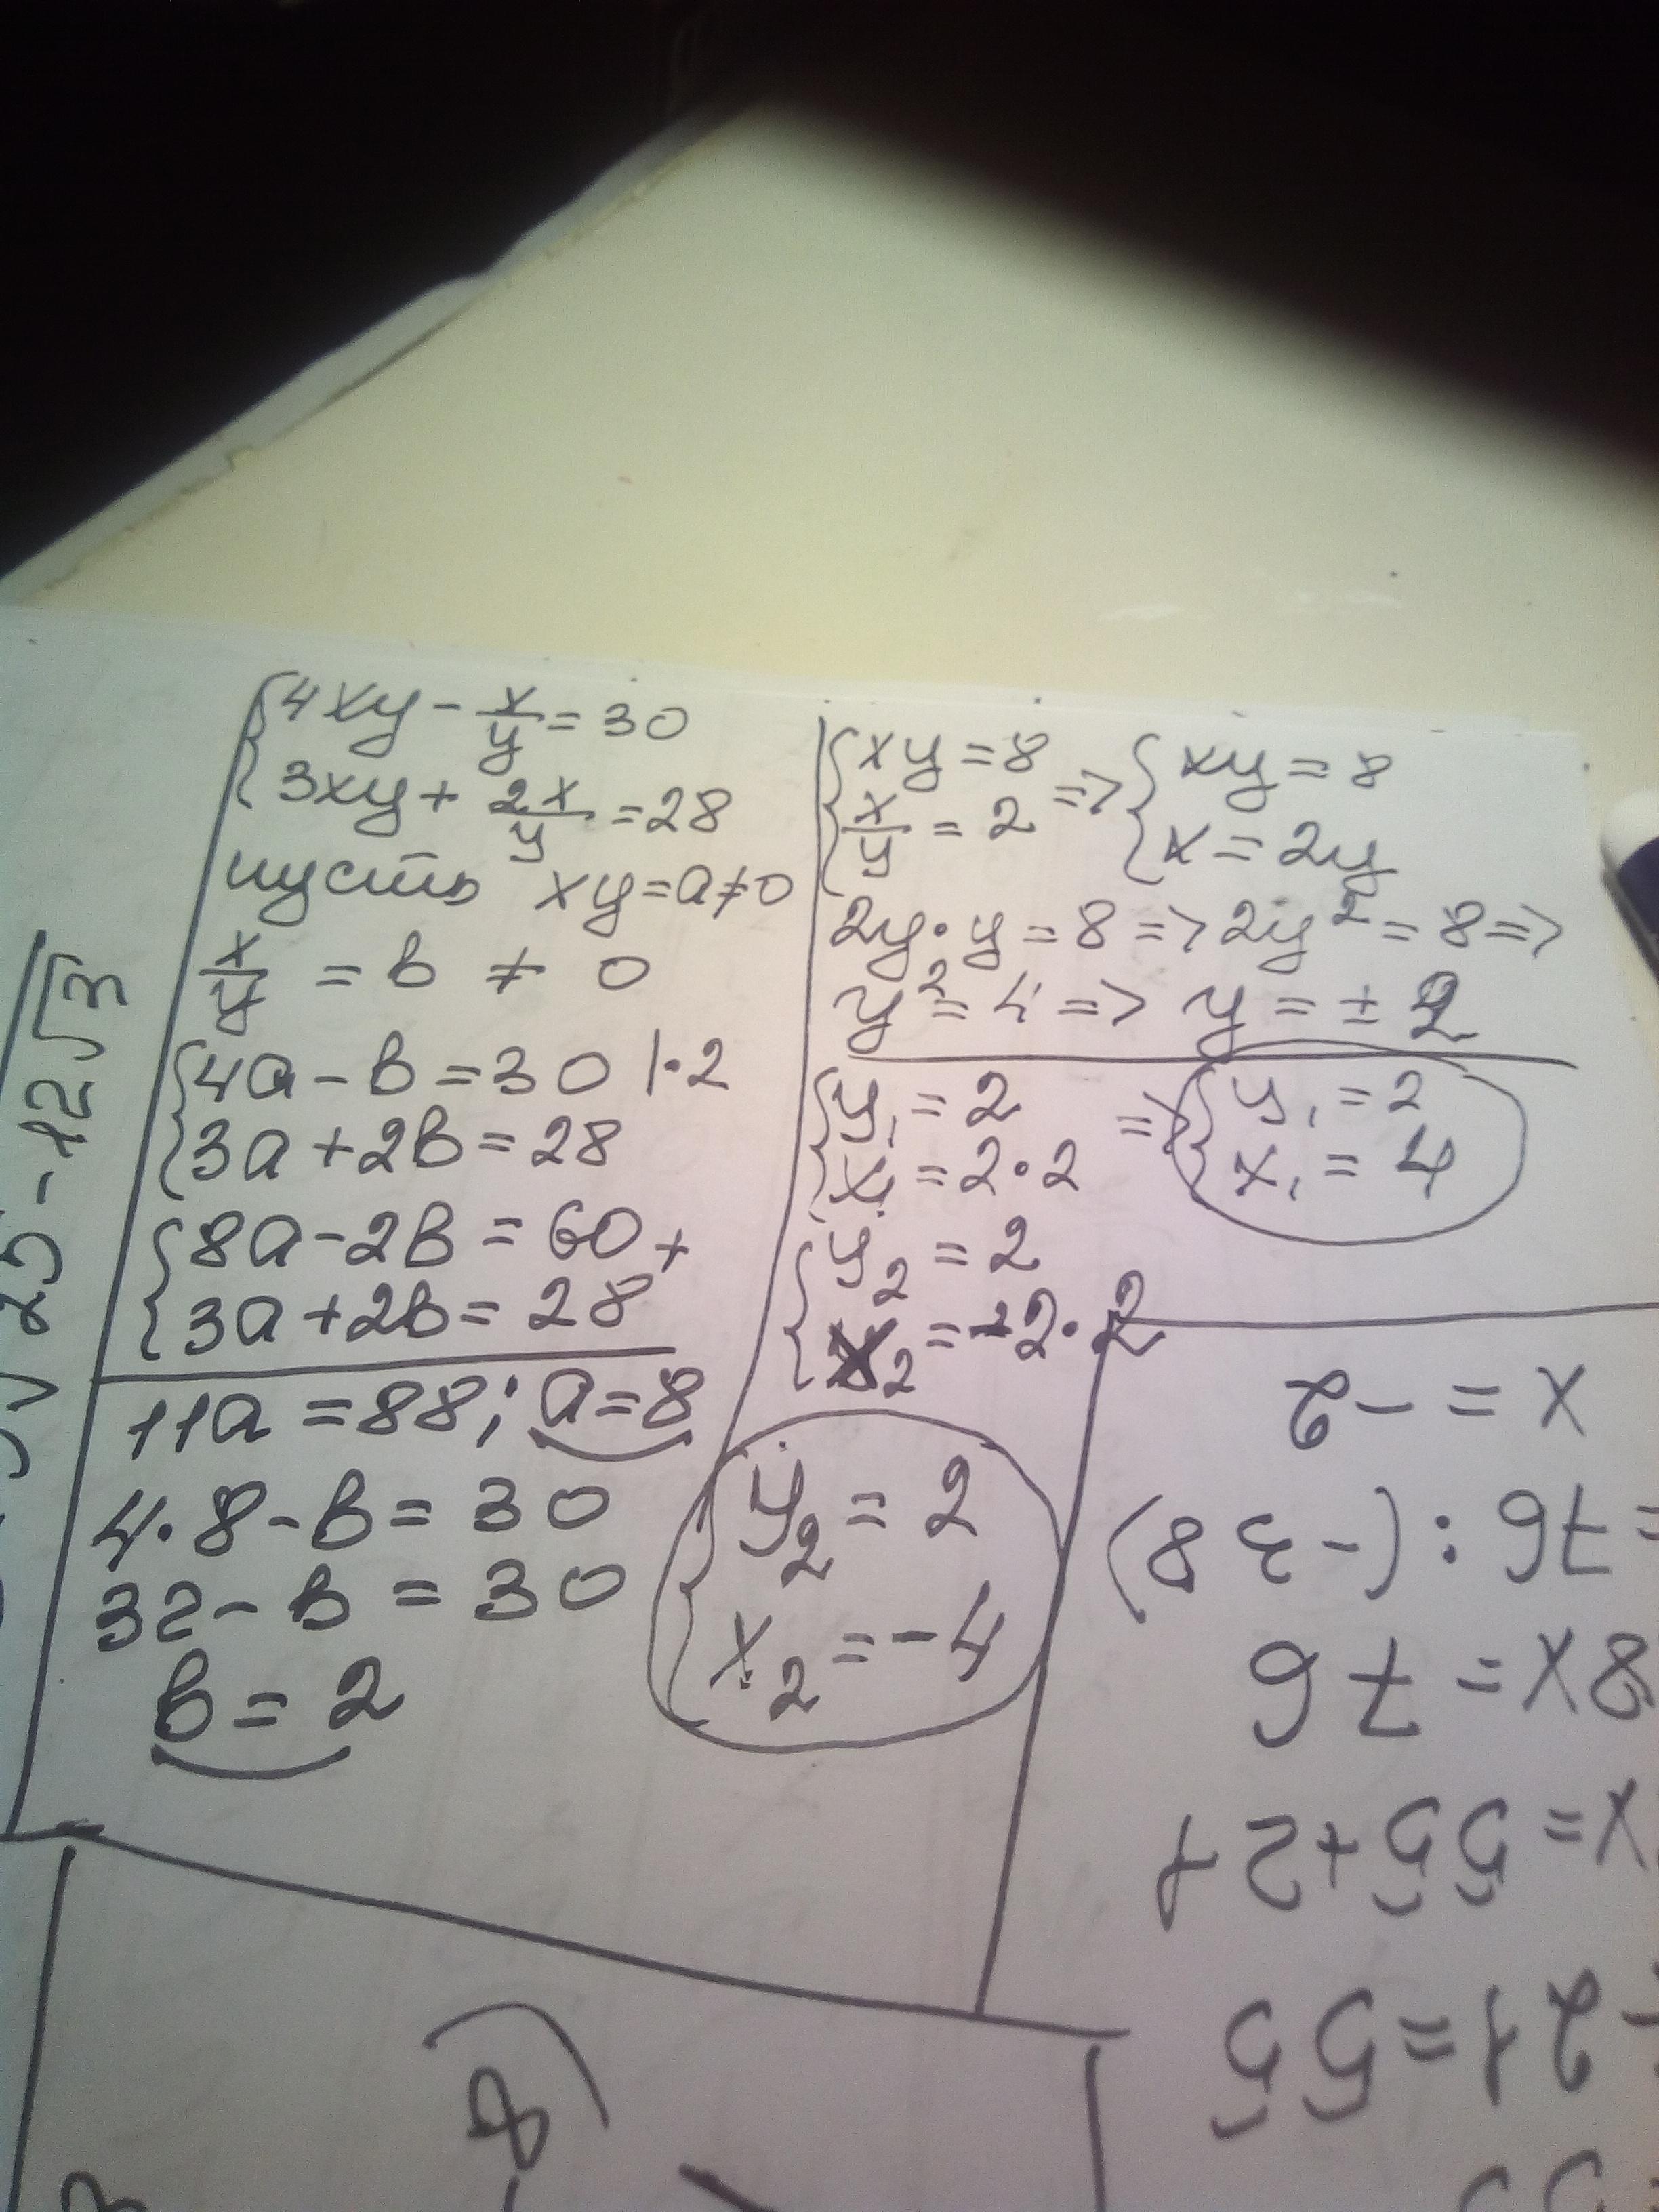 {4xy - x/y = 30
{3xy + 2x/y = 28
пусть xy = a ≠ 0
x/y = b ≠ 0
{4a - b = 30 |·2
{3a + 2b = 28
{8a - 2b = 60 +
{3a + 2b = 28
11a = 88; a = 8
4·8 - b = 30
32 - b = 30
b = 2
{xy = 8 => {xy = 8
{x/y = 2 {x = 2y
2y·y = 8 => 2y² = 8 =>
y² = 4 => y = ± 2
{y₁ = 2 => {y₁ = 2
{x₁ = 2·2 {x₁ = 4
{y₂ = 2
{x₂ = -2·2
{y₂ = 2
{x₂ = -4
25 - 12√3
21 = 55
x = 55 + 21
8x = 76
= 76 : (-38)
x = -2
8